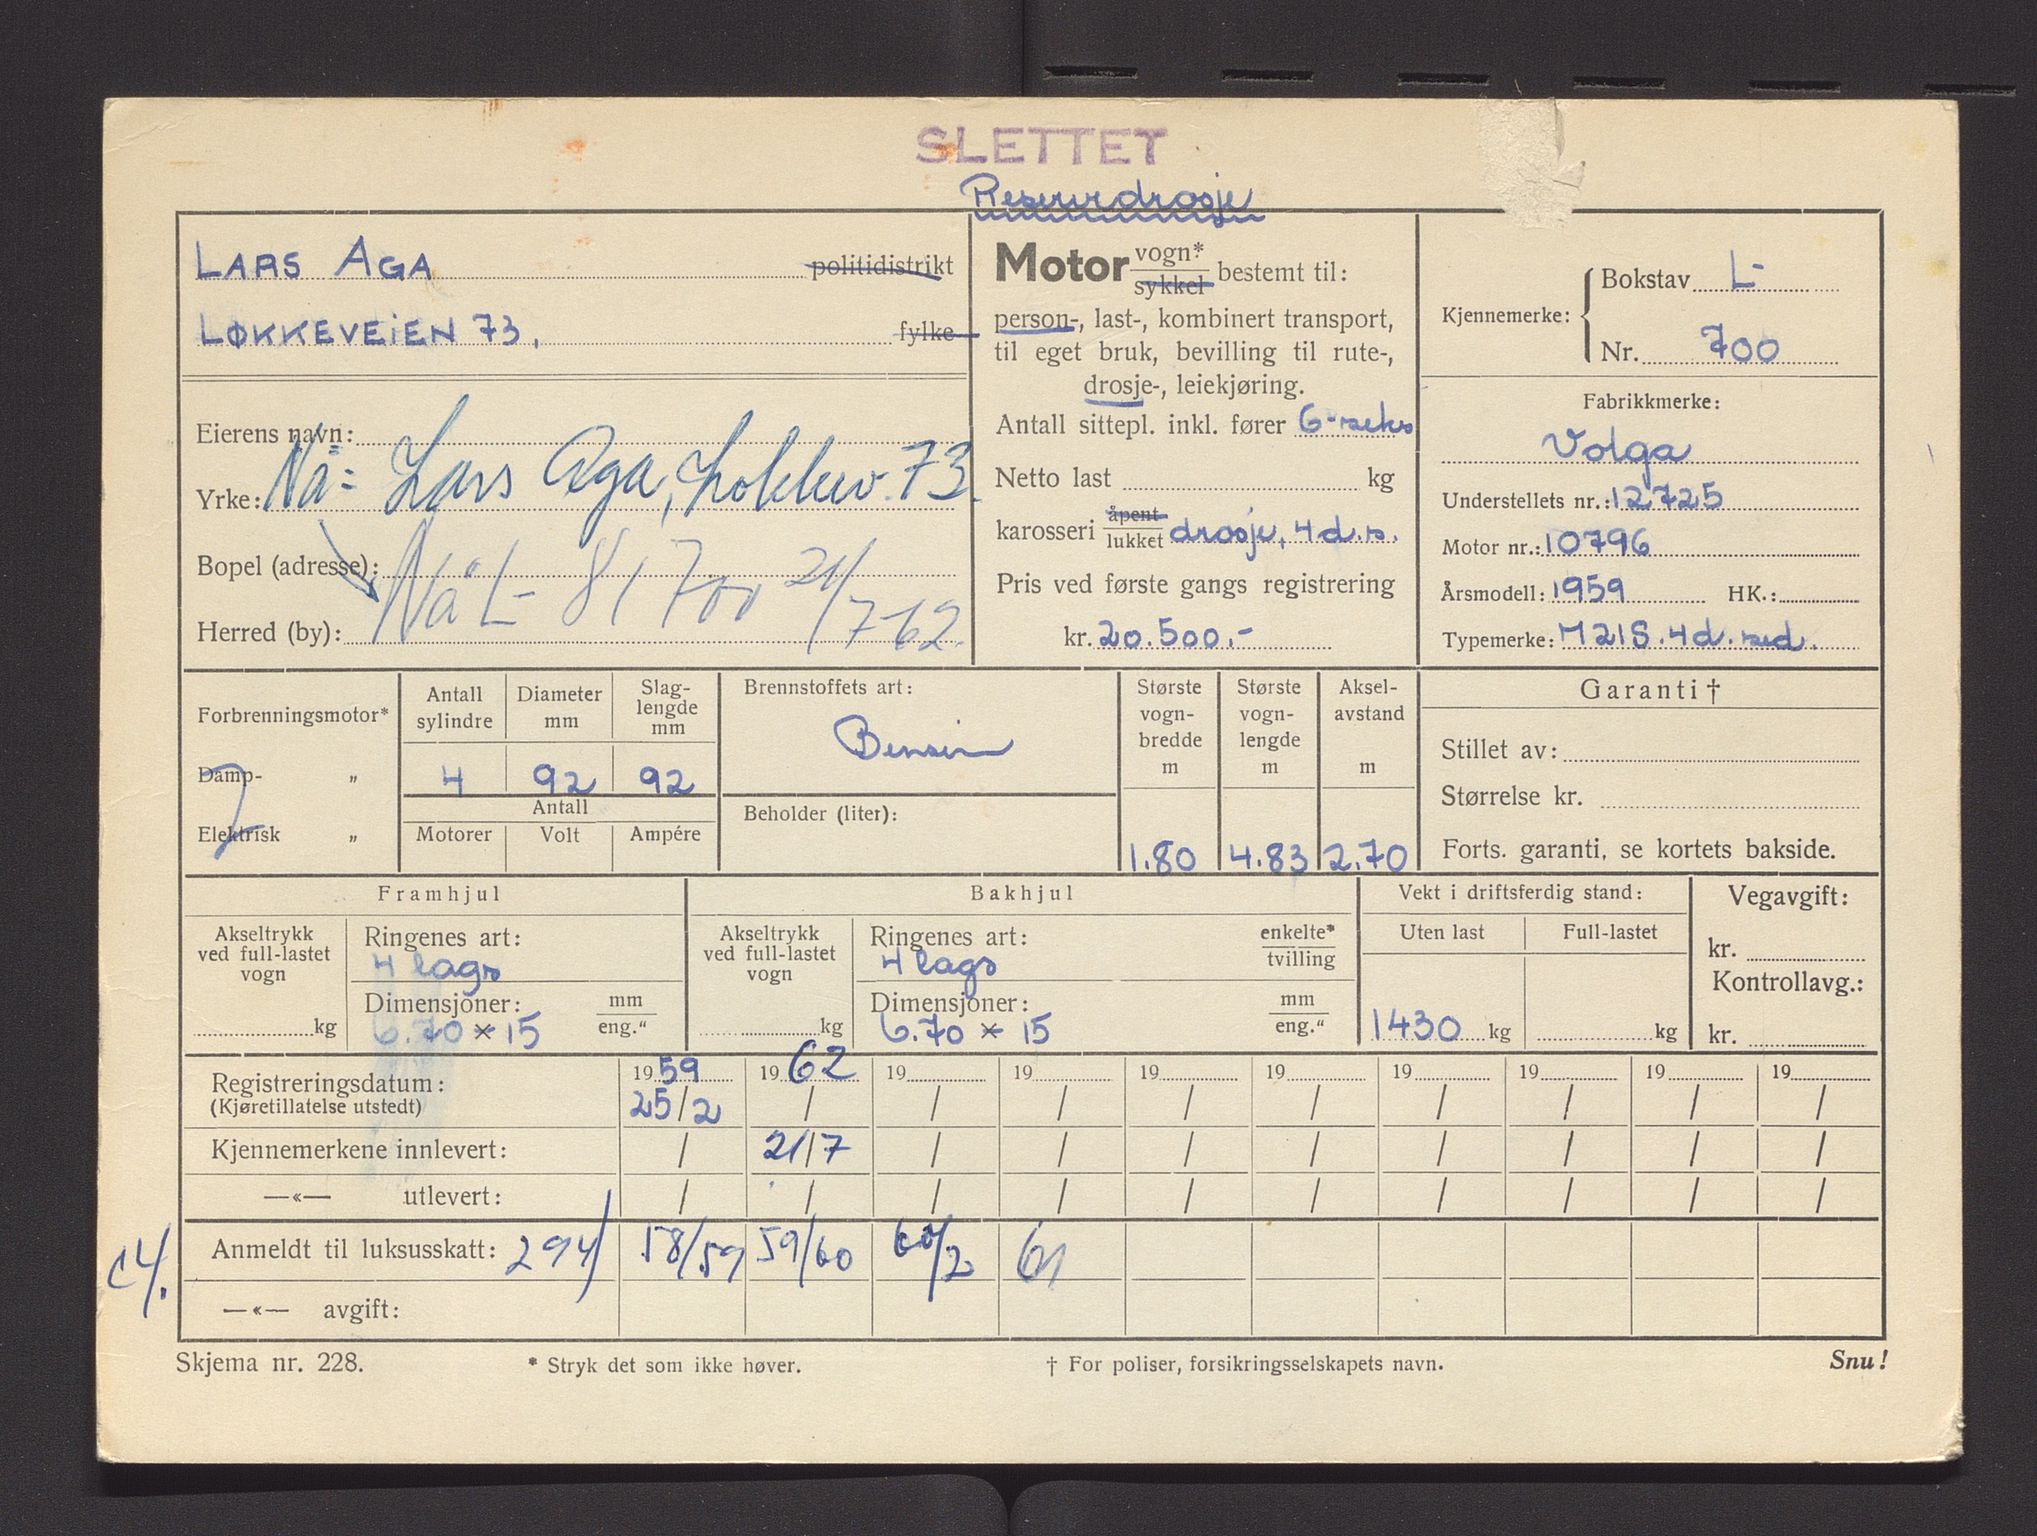 SLETTET
Reservedrosje
LARS AGA politidistrikt
LØKKEVEIEN 73, fylke
Eierens navn:
Nå: Lars Aga, Løkkev. 73.
Yrke:
Bopel (adresse):
Nå L- 81700 21/7-62.
Herred (by):
Motor vogn* sykkel bestemt til:
person-, last-, kombinert transport,
til eget bruk, bevilling til rute-,
drosje-, leiekjøring.
Antall sittepl. inkl. fører 6-seks
Netto last kg
karosseri åpent lukket drosje, 4 d.s.
Pris ved første gangs registrering
kr. 20.500.-
Kjennemerke: Bokstav L-
Nr. 700
Fabrikkmerke:
Volga
Understellets nr.: 12725
Motor nr.: 10796
Årsmodell: 1959 HK.:
Typemerke: M21S. 4d. sed.
Forbrenningsmotor*
Damp- "
Elektrisk "
Antall sylindre
Diameter mm
Slag-lengde mm
4 92 92
Antall
Motorer Volt Ampére
Brennstoffets art:
Bensin
Beholder (liter):
Største vogn-bredde m
1.80
Største vogn-lengde m
4.83
Aksel-avstand m
2.70
Garanti †
Stillet av:
Størrelse kr.
Forts. garanti, se kortets bakside.
Framhjul
Akseltrykk ved full-lastet vogn
kg
Ringenes art:
4 lags
Dimensjoner: mm eng."
6.70 x 15
Bakhjul
Akseltrykk ved full-lastet vogn
kg
Ringenes art: enkelte* tvilling
4 lags
Dimensjoner: mm eng."
6.70 x 15
Vekt i driftsferdig stand:
Uten last Full-lastet
1430 kg kg
Vegavgift:
kr.
Kontrollavg.:
kr.
Registreringsdatum: 1959 1962 19 19 19 19 19 19 19 19
(Kjøretillatelse utstedt) 25/2 / / / / / / / / /
Kjennemerkene innlevert: / 21/7 / / / / / / / /
—«— utlevert: / / / / / / / / / /
Anmeldt til luksusskatt: 294/ 58/59 59/60 60/2 61
—«— avgift:
Skjema nr. 228. * Stryk det som ikke høver. † For poliser, forsikringsselskapets navn. Snu!